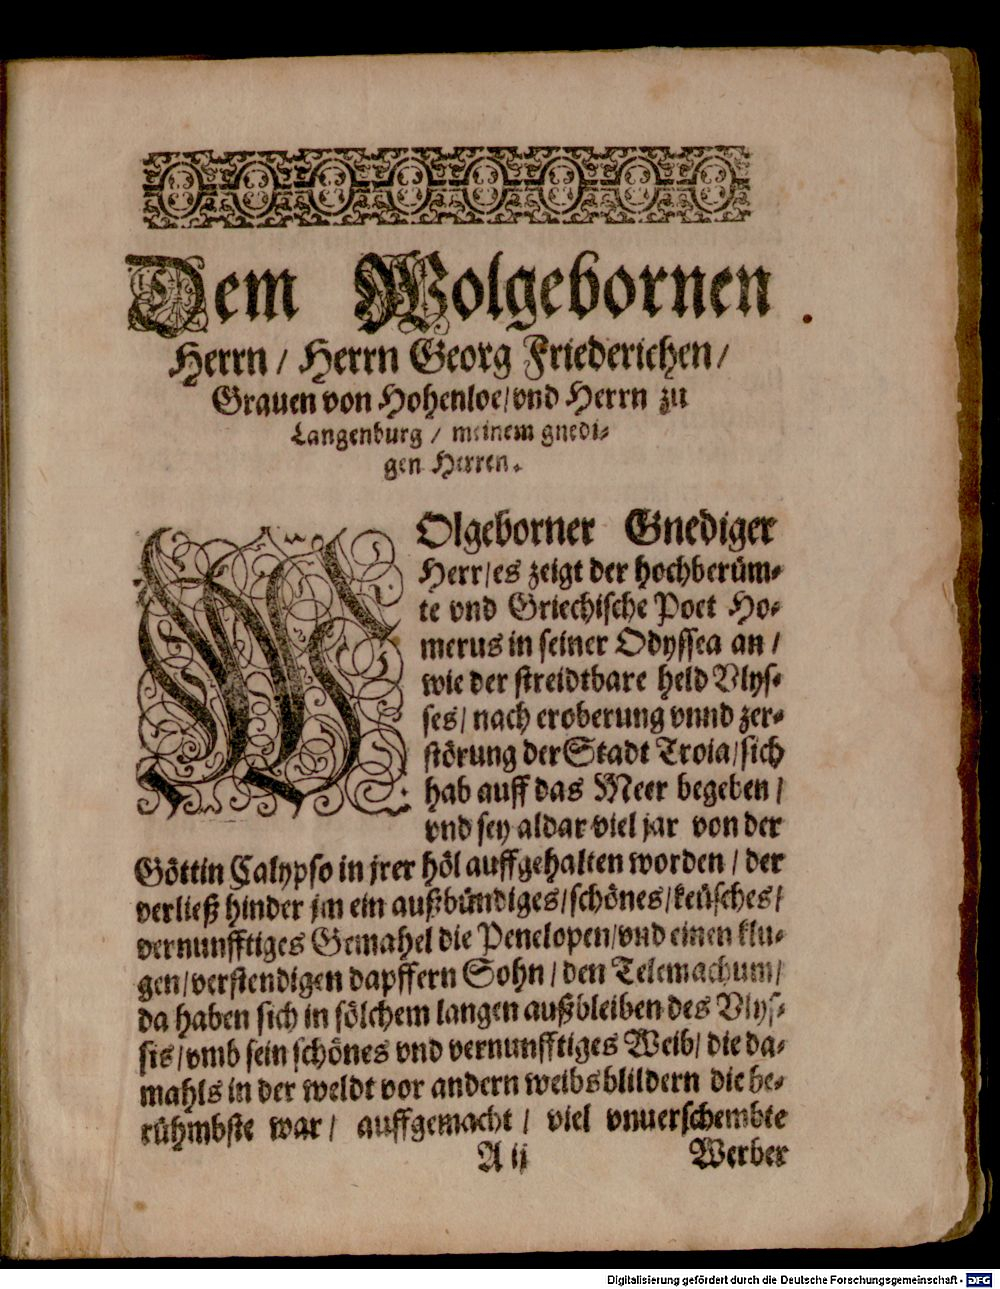 Dem Wolgebornen
Herrn / Herrn Georg Friederichen /
Grauen von Hohenloe / vnd Herrn zu
Langenburg / meinem gnedi-
gen Herren.
WOlgeborner Gnediger
Herr / es zeigt der hochberüm-
te vnd Griechische Poet Ho-
merus in seiner Odyssea an /
wie der streidtbare held Vlys-
ses / nach eroberung vnnd zer-
störung der Stadt Troia / sich
hab auff das Meer begeben /
vnd sey aldar viel jar von der
Göttin Calypso in jrer höl auffgehalten worden / der
verließ hinder jm ein außbündiges / schönes / keüsches /
vernunfftiges Gemahel die Penelopen / vnd einen klu-
gen / verstendigen dapffern Sohn / den Telemachum /
da haben sich in sölchem langen außbleiben des Vlys-
sis / vmb sein schönes vnd vernunfftiges Weib / die da-
mahls in der weldt vor andern weibsblildern die be-
rühmbste war / auffgemacht / viel vnuerschembte
A ij Werber
Digitalisierung gefördert durch die Deutsche Forschungsgemeinschaft - DFG